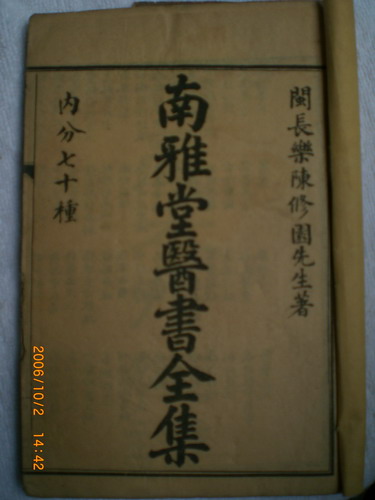 閩長樂陳修園先生著
南雅堂醫書全集
内分七十種
2006/10/2 14:42